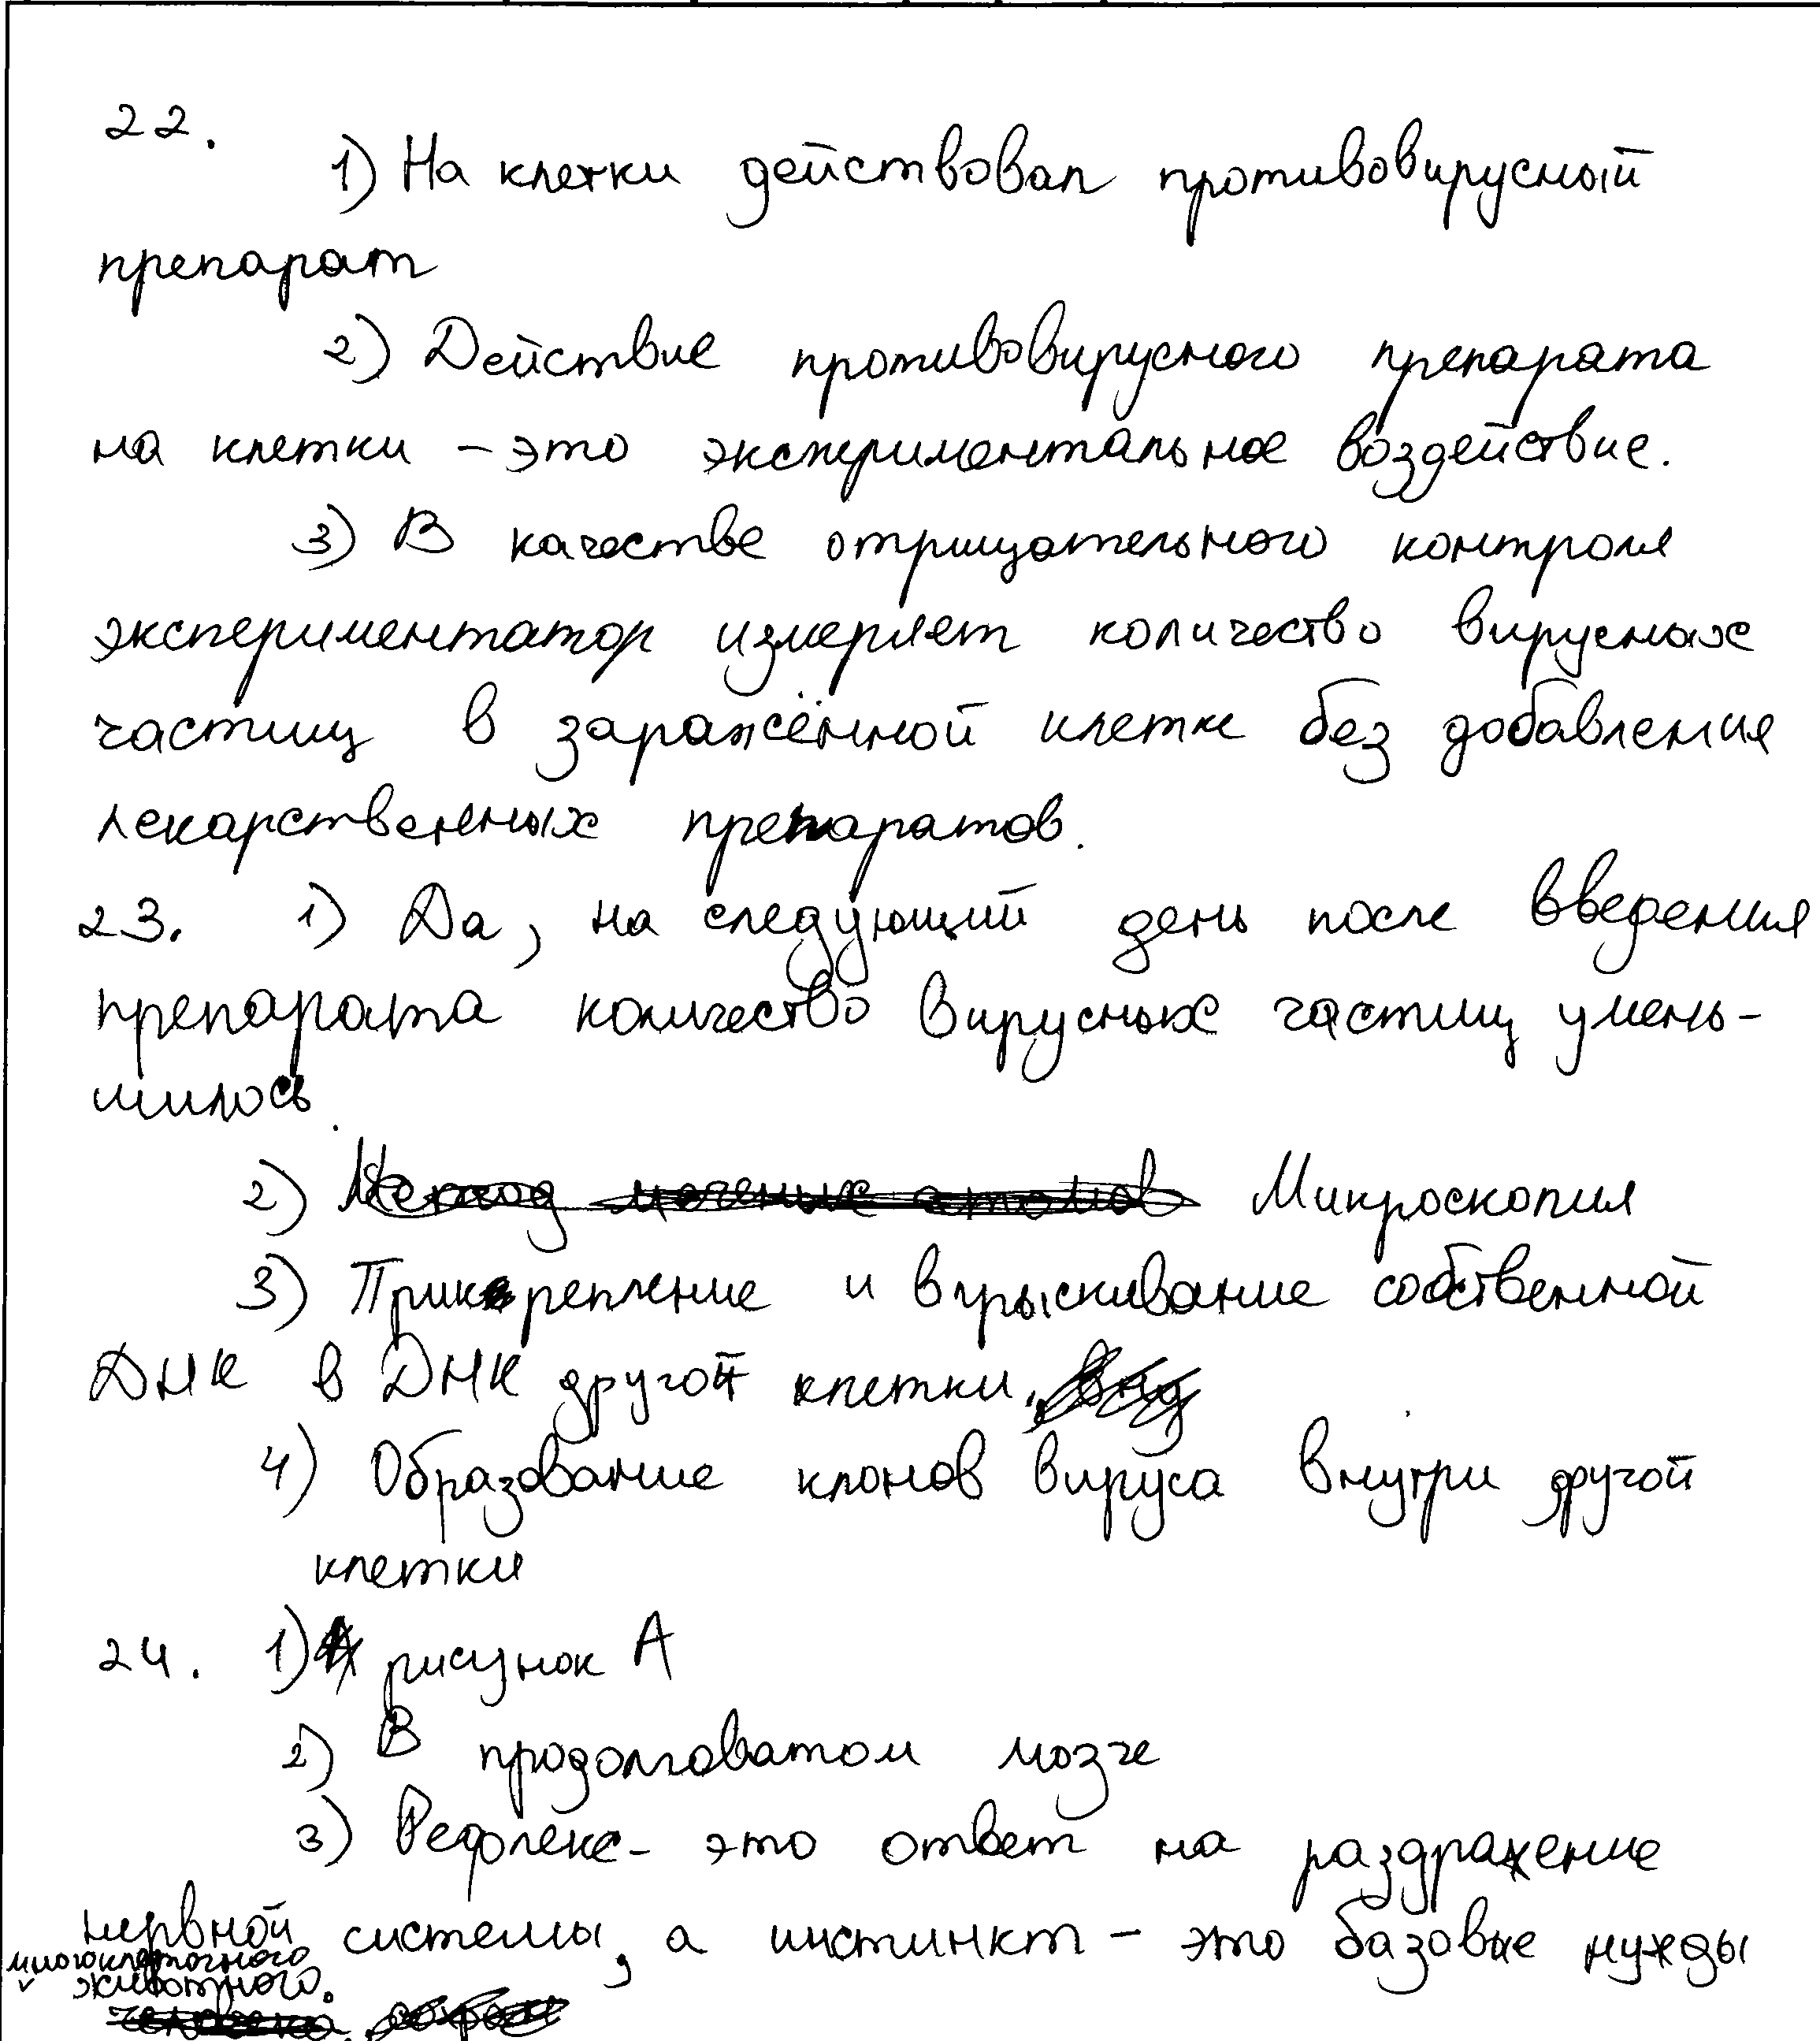 22.
1) На клетки действовал противовирусный
препарат
2) Действие противовирусного препарата
на клетки – это экспериментальное воздействие.
3) В качестве отрицательного контроля
экспериментатор измеряет количество вирусных
частиц в заражённой клетке без добавления
лекарственных препаратов.
23. 1) Да, на следующий день после введения
препарата количество вирусных частиц умень-
шилось.
2) Метод меченых атомов Микроскопия
3) Прикрепление и впрыскивание собственной
ДНК в ДНК другой клетки.
4) Образование клонов вируса внутри другой
клетки
24. 1) рисунок А
2) В продолговатом мозге
3) Рефлекс - это ответ на раздражение
нервной системы, а инстинкт – это базовые нужды
многоклеточного
животного.
человека